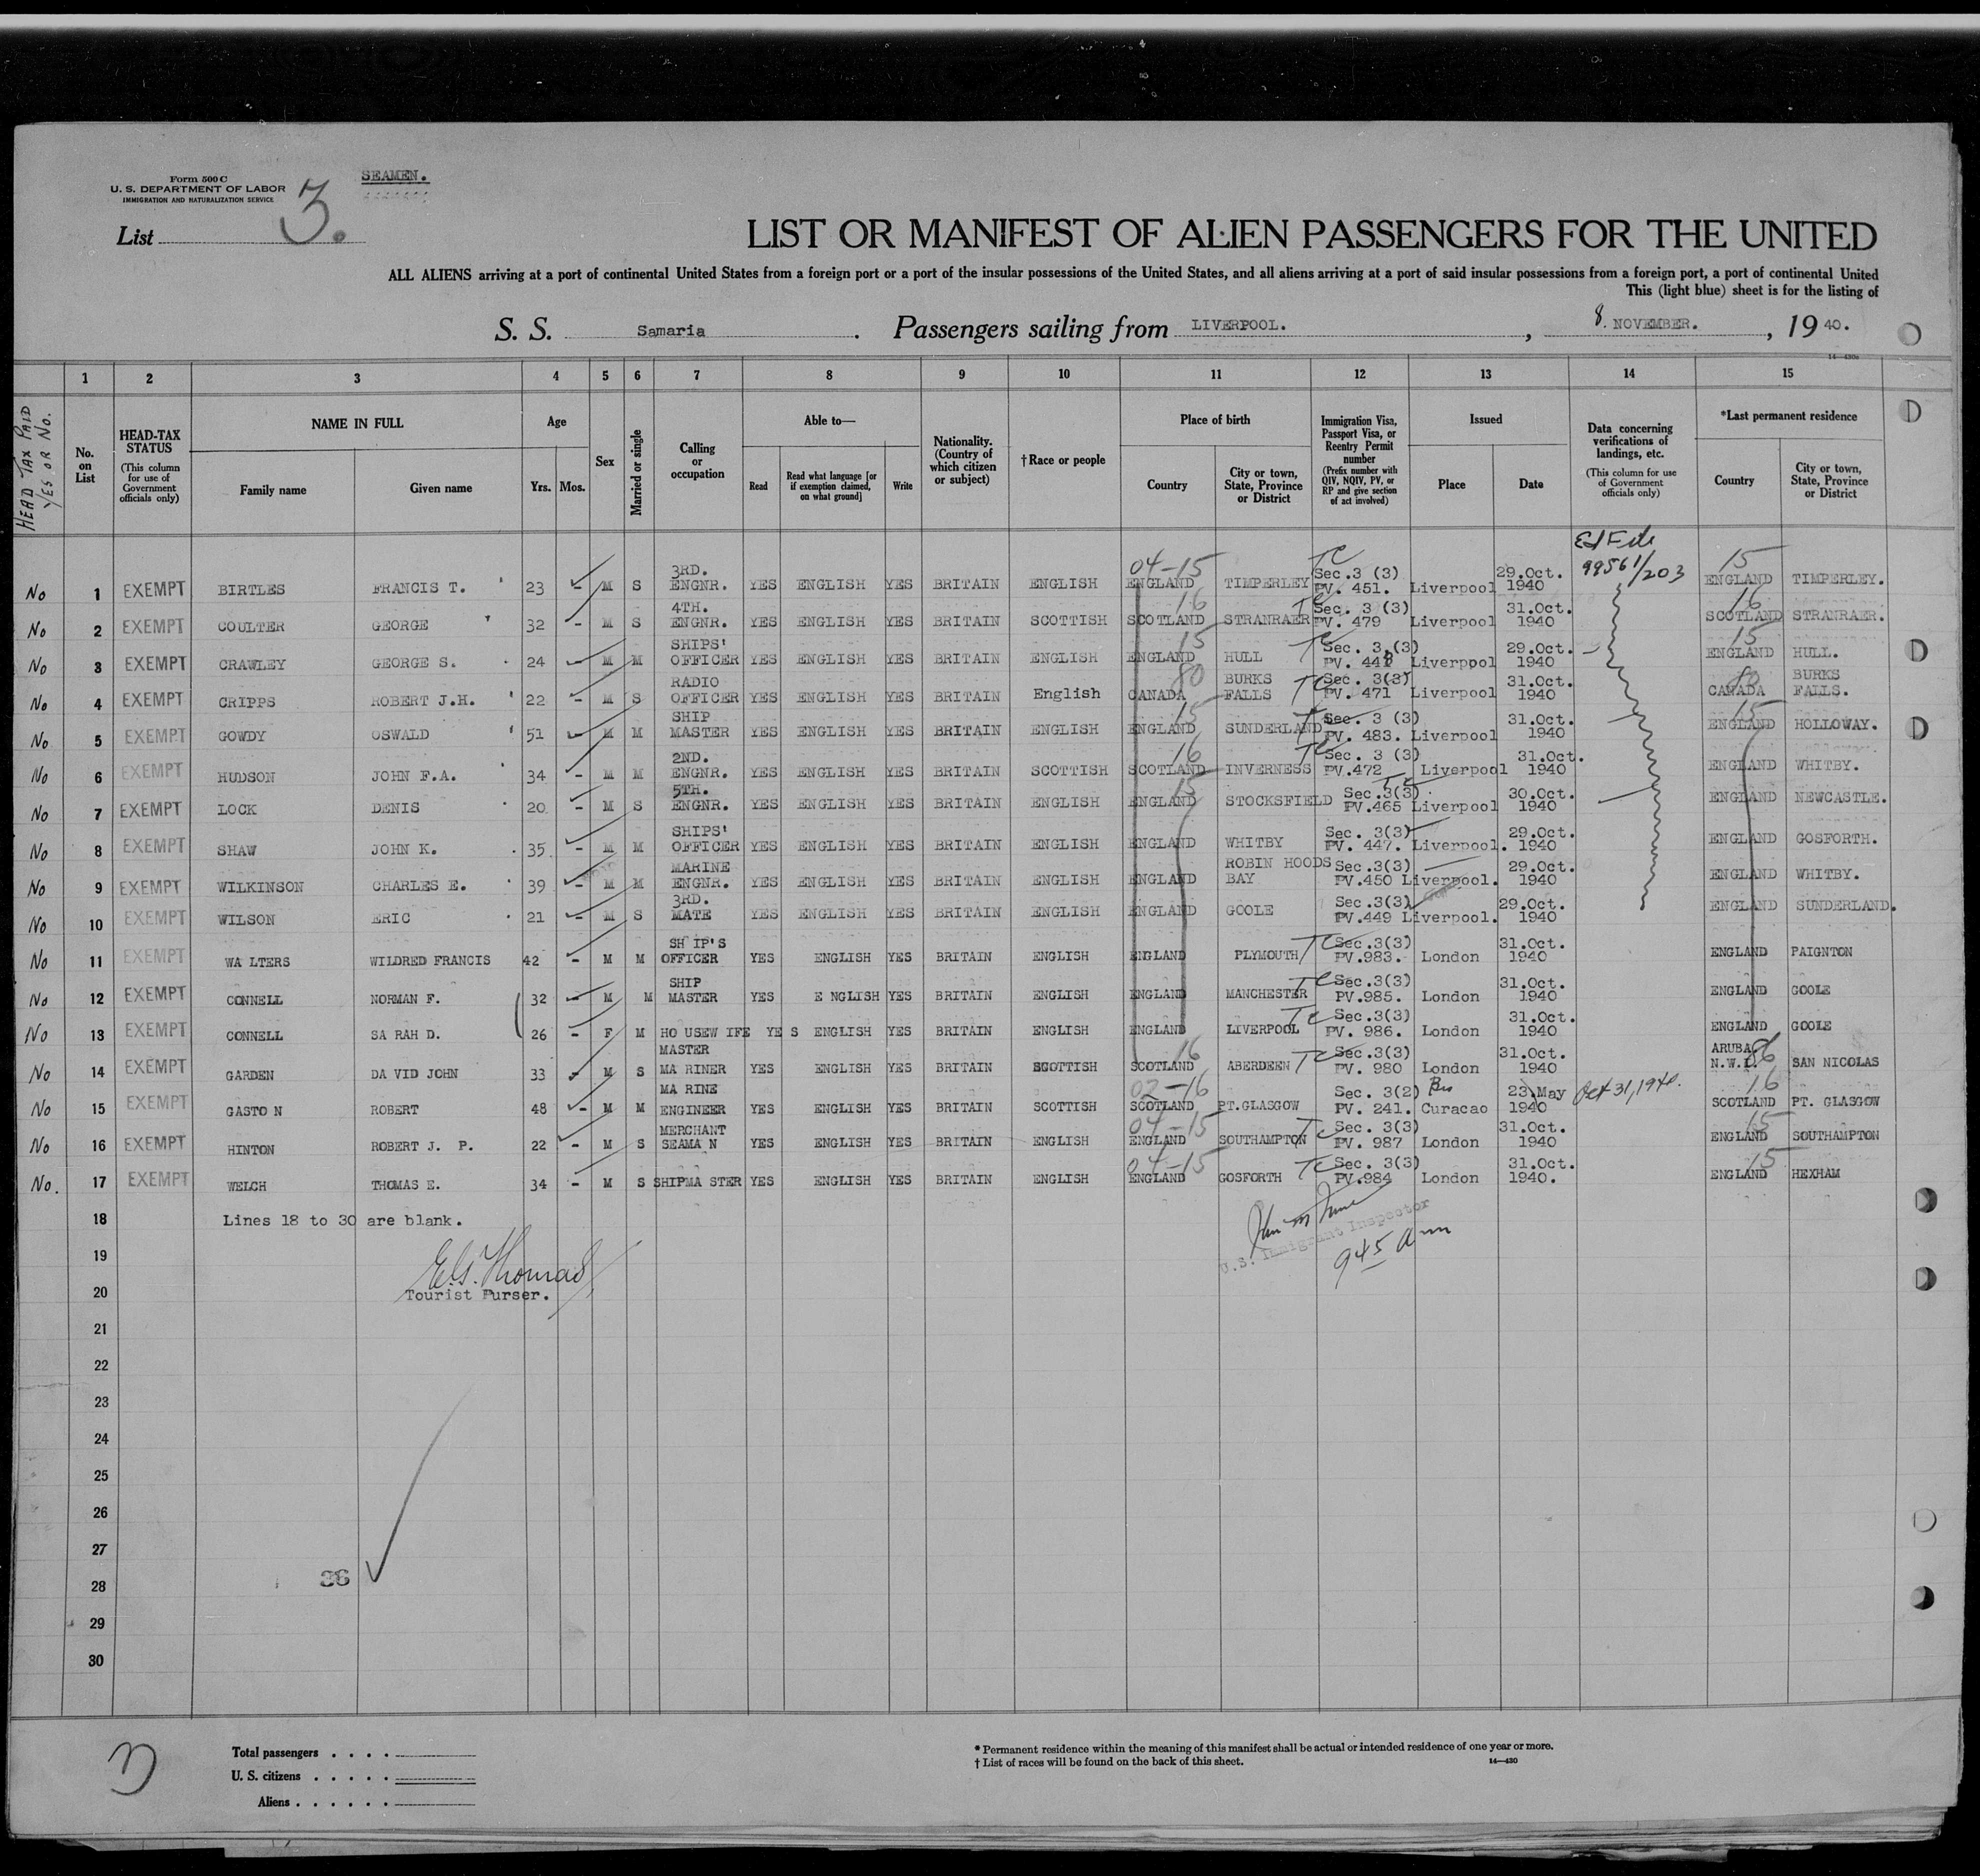 Form 500 C
U. S. DEPARTMENT OF LABOR
IMMIGRATION AND NATURALIZATION SERVICE
SEAMEN.
List 3.
LIST OR MANIFEST OF ALIEN PASSENGERS FOR THE UNITED
ALL ALIENS arriving at a port of continental United States from a foreign port or a port of the insular possessions of the United States, and all aliens arriving at a port of said insular possessions from a foreign port, a port of continental United
This (light blue) sheet is for the listing of
S. S. Samaria . Passengers sailing from LIVERPOOL. , 8. NOVEMBER. , 19 40.
1 2 3 4 5 6 7 8 9 10 11 12 13 14 15
HEAD TAX PAID YES OR NO.
No. on List
HEAD-TAX STATUS (This column for use of Government officials only)
NAME IN FULL Family name Given name
Age Yrs. Mos.
Sex
Married or single
Calling or occupation
Able to— Read Read what language [or if exemption claimed, on what ground] Write
Nationality. (Country of which citizen or subject)
†Race or people
Place of birth Country City or town, State, Province or District
Immigration Visa, Passport Visa, or Reentry Permit number (Prefix number with QIV, NQIV, PV, or RP and give section of act involved)
Issued Place Date
Data concerning verifications of landings, etc. (This column for use of Government officials only)
*Last permanent residence Country City or town, State, Province or District
No 1 EXEMPT BIRTLES FRANCIS T. 23 - M S 3RD. ENGNR. YES ENGLISH YES BRITAIN ENGLISH 04-15 ENGLAND TIMPERLEY TC Sec.3 (3) PV. 451. Liverpool 29.Oct. 1940 99561/203 15 ENGLAND TIMPERLEY.
No 2 EXEMPT COULTER GEORGE 32 - M S 4TH. ENGNR. YES ENGLISH YES BRITAIN SCOTTISH 16 SCOTLAND STRANRAER TC Sec. 3 (3) PV. 479 Liverpool 31.Oct. 1940 16 SCOTLAND STRANRAER.
No 3 EXEMPT CRAWLEY GEORGE S. 24 - M M SHIPS' OFFICER YES ENGLISH YES BRITAIN ENGLISH 15 ENGLAND HULL TC Sec. 3 (3) PV. 448 Liverpool 29.Oct. 1940 15 ENGLAND HULL.
No 4 EXEMPT CRIPPS ROBERT J.H. 22 - M S RADIO OFFICER YES ENGLISH YES BRITAIN English 80 CANADA BURKS FALLS TC Sec. 3(3) PV. 471 Liverpool 31.Oct. 1940 80 CANADA BURKS FALLS.
No 5 EXEMPT GOWDY OSWALD 51 - M M SHIP MASTER YES ENGLISH YES BRITAIN ENGLISH 15 ENGLAND SUNDERLAND Sec. 3 (3) PV. 483. Liverpool 31.Oct. 1940 15 ENGLAND HOLLOWAY.
No 6 EXEMPT HUDSON JOHN F.A. 34 - M M 2ND. ENGNR. YES ENGLISH YES BRITAIN SCOTTISH 16 SCOTLAND INVERNESS TC Sec. 3 (3) PV.472 Liverpool 31.Oct. 1940 ENGLAND WHITBY.
No 7 EXEMPT LOCK DENIS 20 - M S 5TH. ENGNR. YES ENGLISH YES BRITAIN ENGLISH 15 ENGLAND STOCKSFIELD TC Sec.3(3). PV.465 Liverpool 30.Oct. 1940 ENGLAND NEWCASTLE.
No 8 EXEMPT SHAW JOHN K. 35 - M M SHIPS' OFFICER YES ENGLISH YES BRITAIN ENGLISH ENGLAND WHITBY Sec. 3(3) PV. 447. Liverpool. 29.Oct. 1940 ENGLAND GOSFORTH.
No 9 EXEMPT WILKINSON CHARLES E. 39 - M M MARINE ENGNR. YES ENGLISH YES BRITAIN ENGLISH ENGLAND ROBIN HOODS BAY Sec.3(3) PV.450 Liverpool. 29.Oct. 1940 ENGLAND WHITBY.
No 10 EXEMPT WILSON ERIC 21 - M S 3RD. MATE YES ENGLISH YES BRITAIN ENGLISH ENGLAND GOOLE Sec.3(3) PV.449 Liverpool. 29.Oct. 1940 ENGLAND SUNDERLAND.
No 11 EXEMPT WA LTERS WILDRED FRANCIS 42 - M M SH IP'S OFFICER YES ENGLISH YES BRITAIN ENGLISH ENGLAND PLYMOUTH TC Sec.3(3) PV.983. London 31.Oct. 1940 ENGLAND PAIGNTON
No 12 EXEMPT CONNELL NORMAN F. 32 - M M SHIP MASTER YES E NGLISH YES BRITAIN ENGLISH ENGLAND MANCHESTER TC Sec.3(3) PV.985. London 31.Oct. 1940 ENGLAND GOOLE
No 13 EXEMPT CONNELL SA RAH D. 26 - F M HO USEW IFE YE S ENGLISH YES BRITAIN ENGLISH ENGLAND LIVERPOOL TC Sec.3(3) PV. 986. London 31.Oct. 1940 ENGLAND GOOLE
No 14 EXEMPT GARDEN DA VID JOHN 33 - M S MASTER MA RINER YES ENGLISH YES BRITAIN SCOTTISH 16 SCOTLAND ABERDEEN TC Sec.3(3) PV. 980 London 31.Oct. 1940 ARUBA N.W.I. 86 SAN NICOLAS
No 15 EXEMPT GASTO N ROBERT 48 - M M MA RINE ENGINEER YES ENGLISH YES BRITAIN SCOTTISH 02-16 SCOTLAND PT.GLASGOW Sec. 3(2) PV. 241. Curacao 23 May 1940 Oct 31, 1940. 16 SCOTLAND PT. GLASGOW
No 16 EXEMPT HINTON ROBERT J. P. 22 - M S MERCHANT SEAMA N YES ENGLISH YES BRITAIN ENGLISH 04-15 ENGLAND SOUTHAMPTON TC Sec. 3(3) PV. 987 London 31.Oct. 1940 15 ENGLAND SOUTHAMPTON
No. 17 EXEMPT WELCH THOMAS E. 34 - M S SHIPMA STER YES ENGLISH YES BRITAIN ENGLISH 04-15 ENGLAND GOSFORTH TC Sec. 3(3) PV.984 London 31.Oct. 1940. 15 ENGLAND HEXHAM
18 Lines 18 to 30 are blank.
U.S. Immigrant Inspector
945 am
19
E.G. Thomas
Tourist Purser.
20
21
22
23
24
25
26
27
28
29
30
Total passengers . . . .
U. S. citizens . . . . .
Aliens . . . . . .
* Permanent residence within the meaning of this manifest shall be actual or intended residence of one year or more.
† List of races will be found on the back of this sheet.
14—430